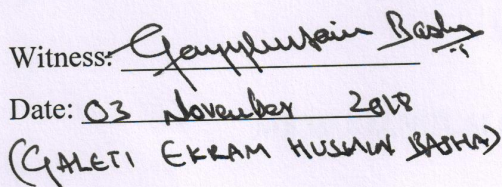 Witness: Basha
Date: 03 November 2018
(GALETI EKRAM HUSSAIN BASHA)